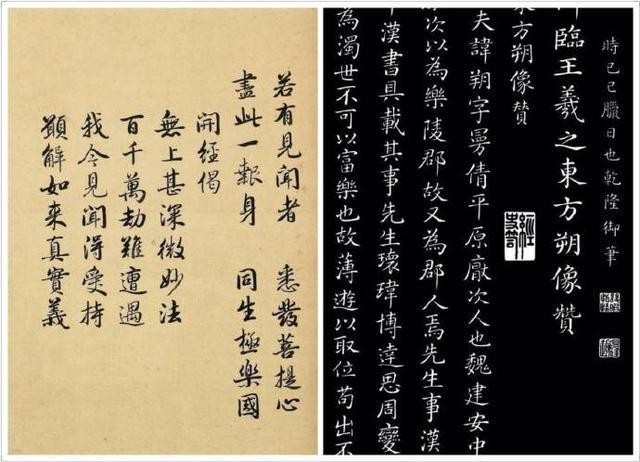 若有見聞者 悉發菩提心
盡此一報身 同生極樂國
開經偈
無上甚深微妙法
百千萬劫難遭遇
我今見聞得受持
願解如來真實義
時己巳臘日也乾隆御筆
臨王羲之東方朔像贊
東方朔像贊
夫諱朔字曼倩平原厭次人也魏建安中
次以為樂陵郡故又為郡人焉先生事漢
漢書具載其事先生瓌瑋博達思周變
為濁世不可以富樂也故薄遊以取位苟出不